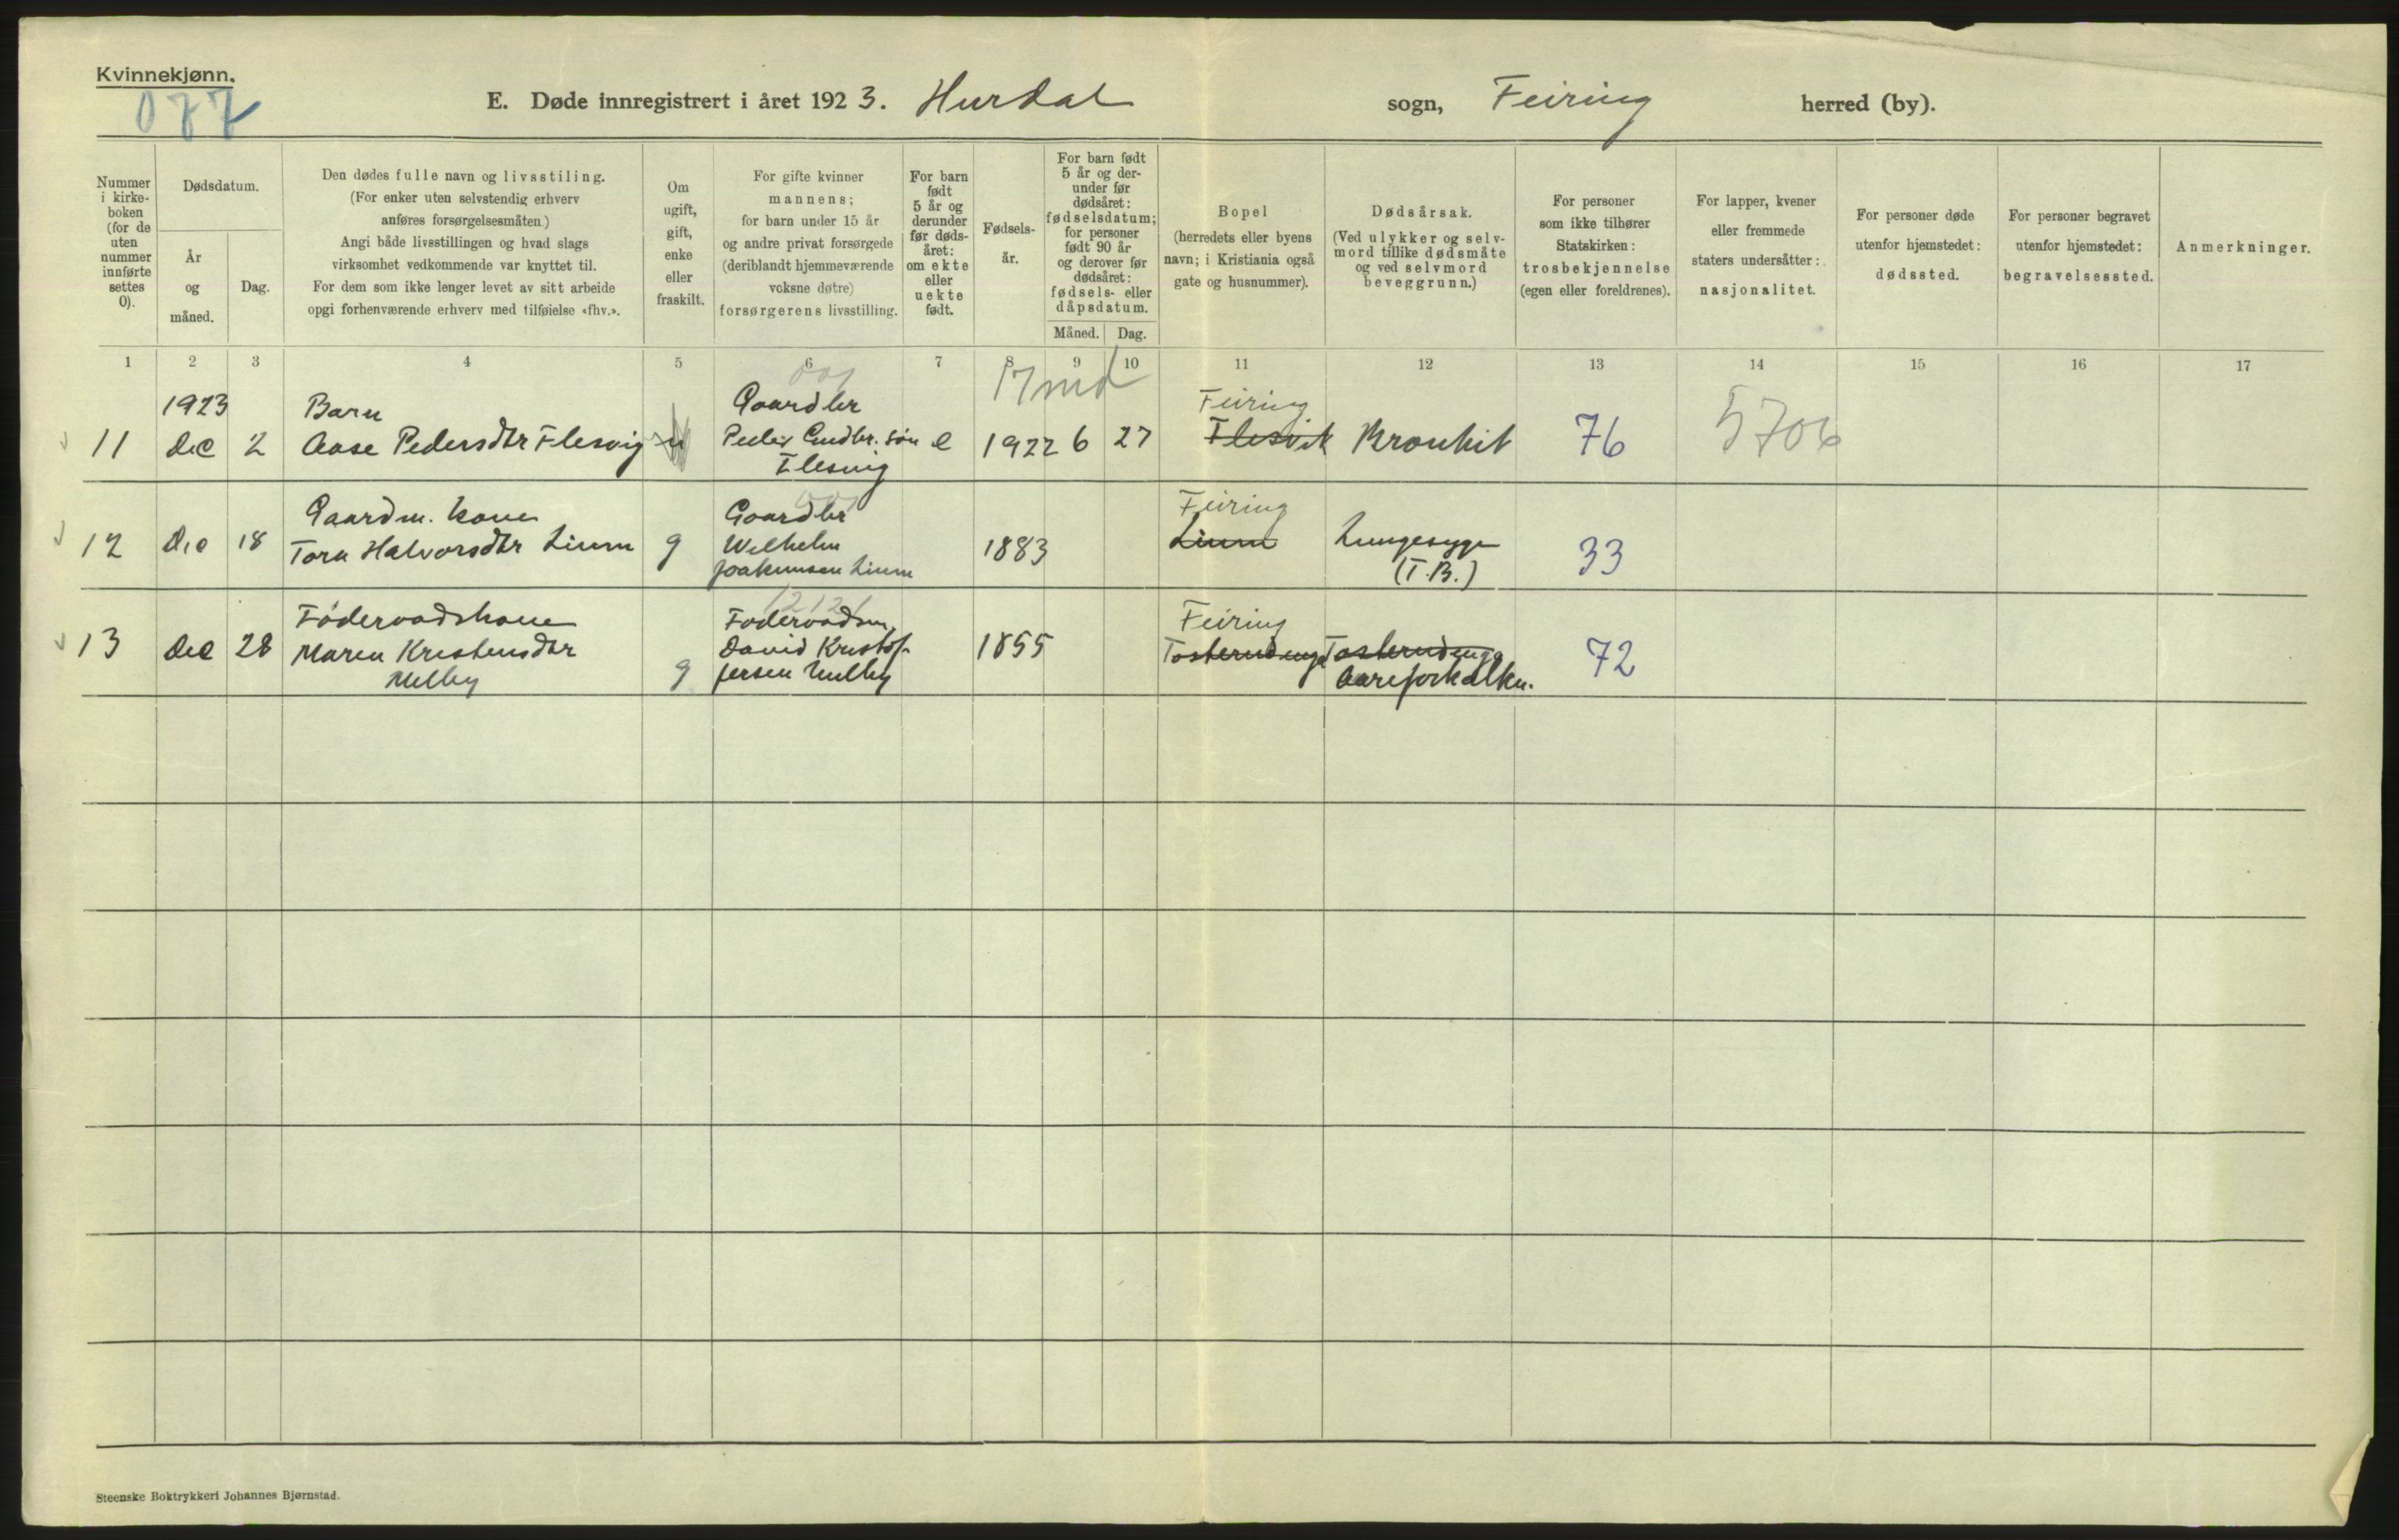 Kvinnekjønn.
077
E. Døde innregistrert i året 1923. Hurdal sogn, Feiring herred (by).
Nummer i kirke- boken (for de uten nummer innførte settes 0).
Dødsdatum.
År og måned.
Dag.
Den dødes fulle navn og livsstiling.
(For enker uten selvstendig erhverv
anføres forsørgelsesmåten)
Angi både livsstillingen og hvad slags
virksomhet vedkommende var knyttet til.
For dem som ikke lenger levet av sitt arbeide
opgi forhenværende erhverv med tilføielse «fhv.».
Om ugift, gift, enke eller fraskilt.
For gifte kvinner
mannens;
for barn under 15 år
og andre privat forsørgede
(deriblandt hjemmeværende
voksne døtre)
forsørgerens livsstilling.
For barn født 5 år og derunder før døds- året: om ekte eller uekte født.
Fødsels- år.
For barn født
5 år og der-
under før
dødsåret:
fødselsdatum;
for personer
født 90 år
og derover før
dødsåret:
fødsels- eller
dåpsdatum.
Måned. Dag.
Bopel
(herredets eller byens
navn; i Kristiania også
gate og husnummer).
Dødsårsak.
(Ved ulykker og selv-
mord tillike dødsmåte
og ved selvmord
beveggrunn.)
For personer
som ikke tilhører
Statskirken:
trosbekjennelse
(egen eller foreldrenes).
For lapper, kvener
eller fremmede
staters undersåtter:
nasjonalitet.
For personer døde
utenfor hjemstedet:
dødssted.
For personer begravet
utenfor hjemstedet:
begravelsessted.
Anmerkninger.
1 2 3 4 5 6 7 8 9 10 11 12 13 14 15 16 17
17 md
1923 Barn Gaardbr Feiring
11 Dec 2 Aase Pedersdtr Flesvig u Peder Gudbr. søn e 1922 6 27 Flesvik Bronkit 76 5706
Flesvig
Gaardm. kone Gaardbr Feiring
12 Dec 18 Tora Halvorsdtr Lium g Wilhelm 1883 Lium Lungesyge 33
Joakimsen Lium (T.B.)
12121
Föderaadskone Föderaadsm. Feiring
13 Dec 28 Maren Kristensdtr David Kristof- 1855 Tosterudenga Tosterudenga 72
Melby g fersen Melby Aareforkalkn.
Steenske Boktrykkeri Johannes Bjørnstad.